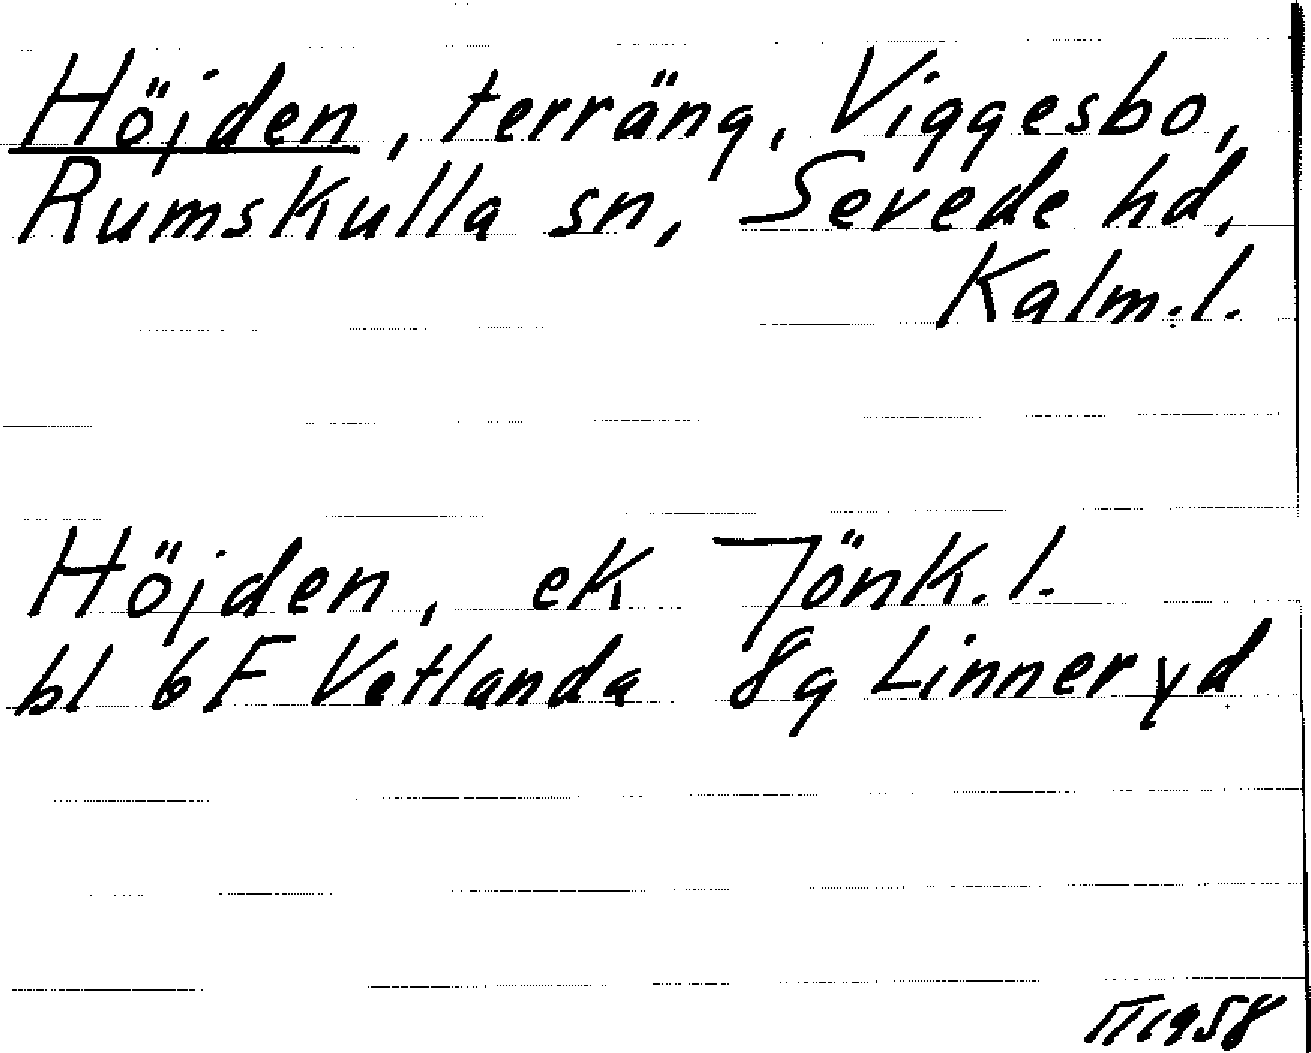 Höjden, terräng, Viggesbo,
Rumskulla sn, Sevede hd,
Kalm.l.
Höjden, ek Jönk.l.
bl 6F Vetlanda 8g Linneryd
1958